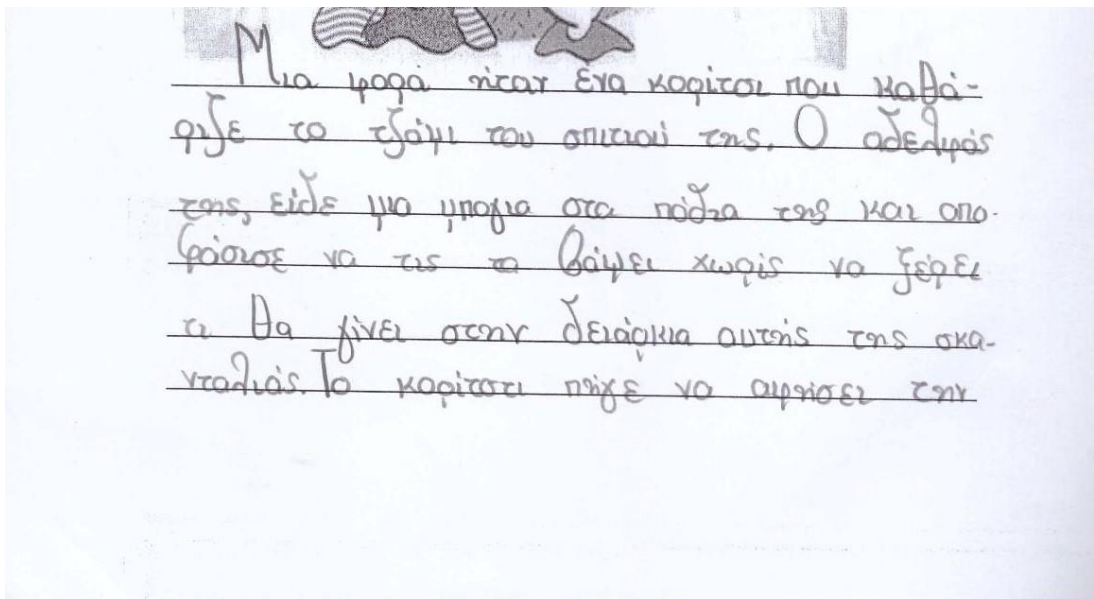 Μια φορά ήταν ένα κορίτσι που καθά-
ριζε το τζάμι του σπιτιού της. Ο αδελφός
της, είδε μια μπογια στα πόδια της και απο-
φάσισε να τις τα βάψει χωρίς να ξέρει
τι θα γίνει στην δειάρκια αυτής της σκα-
νταλιάς. Το κορίτσι πήγε να αφήσει την